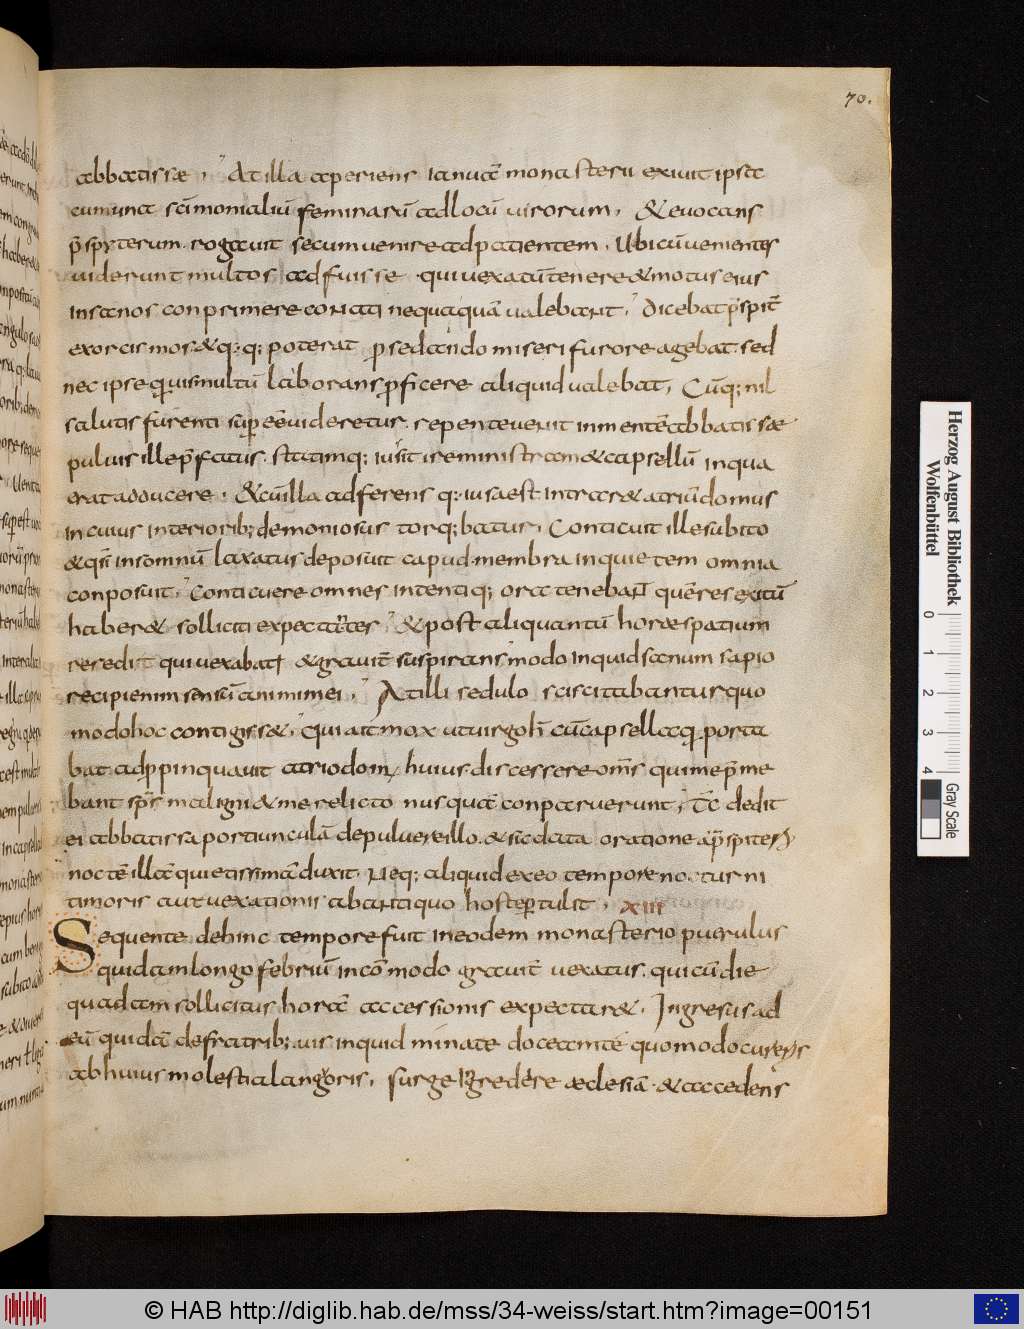 70.
abbatissae; At illa aperiens ianuā monasterii exiuit ipsa
cumuna scīmonialiū feminarū adlocū uirorum, & euocans
p̄spyterum rogauit secum uenire adpatientem. Ubicū uenientes
uiderunt multos adfuisse qui uexatū tenere & motus eius
insanos conprimere conati nequaquā ualebant; dicebat p̄spit̄
exorcismos & q:q; poterat p sedando miseri furore agebat. sed
nec ipse quis multū laborans pficere aliquid ualebat, Cūq; nil
salutis furenti supeē uideretur. repente uenit inmentē abbatissae
puluis ille p̄fatus. statimq; iusit ire ministram & capsellū inqua
erat adducere. & cū illa adferens q: iusa est intrar& atriū domus
in cuius interiorib; demoniosus torq;batur, Conticuit ille subito
& qsī insomnū laxatus deposuit capud membra inquietem omnia
conposuit; Conticuere omnes intentiq; ora tenebant quē res exitū
haber& solliciti expectantes; & post aliquantū horae spatium
resedit qui uexabat & grauit̄ suspirans modo inquid sanum sapio
recipi enim sensū animi mei; At illi sedulo sciscitabantur quo
modo hoc contigiss&; Qui ait mox ut uirgo h̄ cū capsella q porta
bat adppinquauit atrio dom huius discessere om̄s qui me p̄me
bant sp̄s maligni & me relicto nusquā conparuerunt; Tc̄ dedit
ei abbatissa portiunculā de puluere illo. & sic data oratione a p̄spitero
noctē illā quietissimā duxit. Neq; aliquid exeo tempore nocturni
timoris aut uexationis abantiquo hoste ptulit, XIII
Sequente dehinc tempore fuit in eodem monasterio puerulus
quidam longo febriū incōmodo grauit̄ uexatus. qui cū die
quadam sollicitus horā accessionis expectar&. Ingresus ad
eū quidā de fratrib; uis inquid mi nate doceam te quomodo cureris
ab huius molestia langoris, surge Ingredere aeclesiā & accedens
Herzog August Bibliothek
Wolfenbüttel
0 1 2 3 4
Gray Scale
© HAB http://diglib.hab.de/mss/34-weiss/start.htm?image=00151